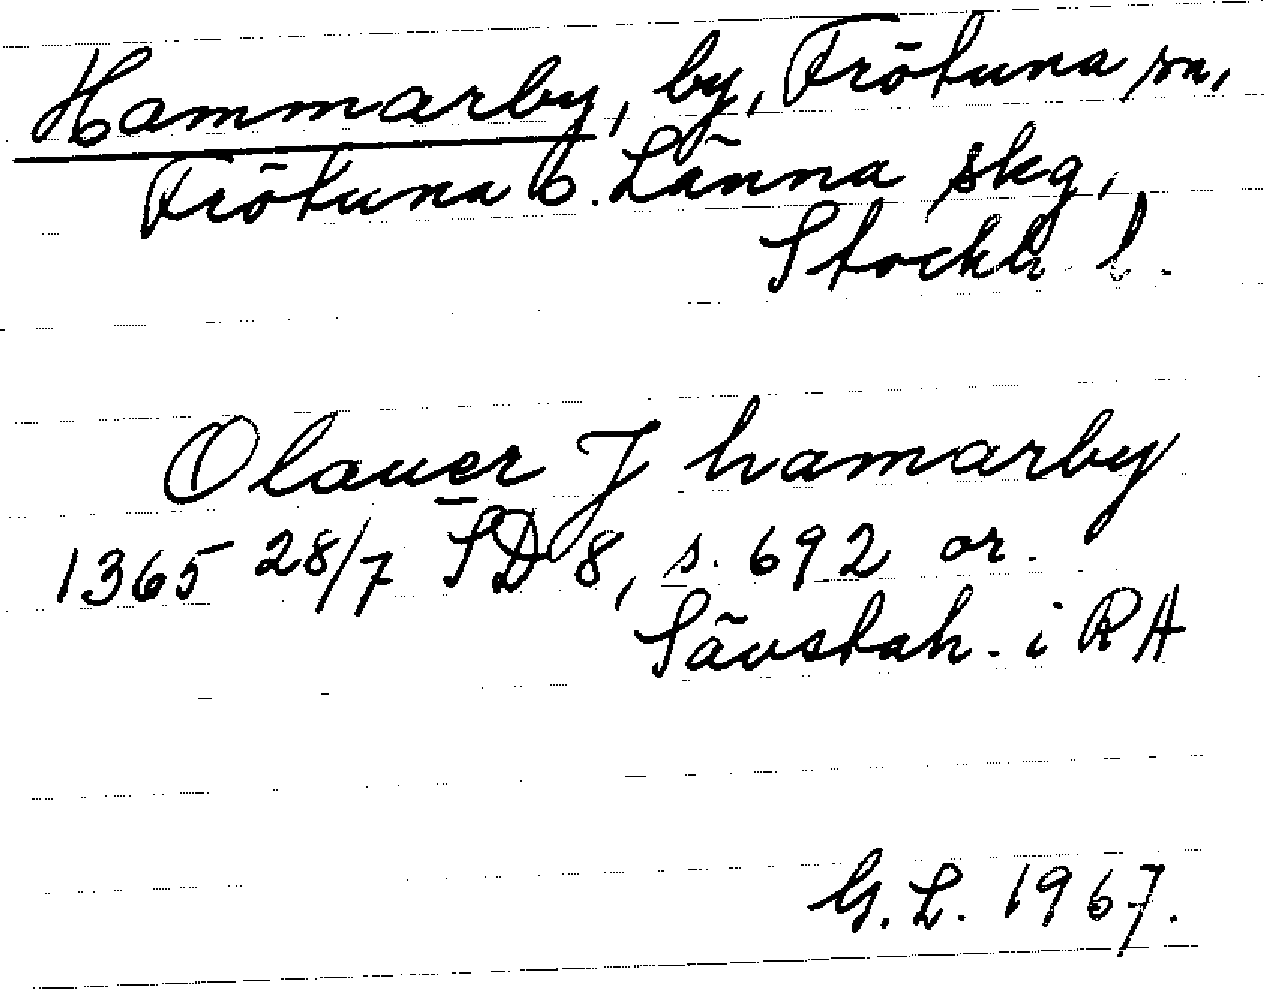 Hammarby, by, Frötuna sn,
Frötuna o. Länna skg,
Stockh. l.
Olauer J hamarby
1365 28/7 SD 8, s. 692 or.
Sävstah. i RA
G. L. 1967.